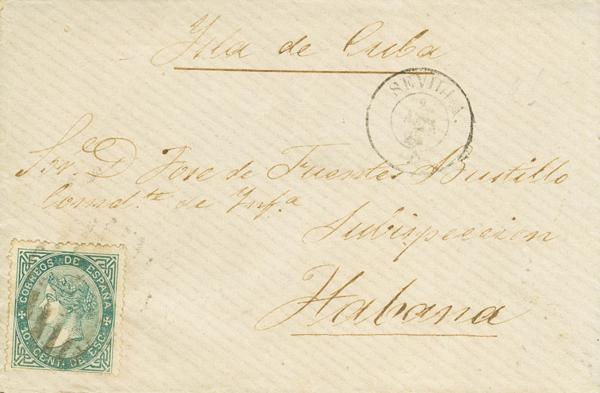 Ysla de Cuba
SEVILLA.
Sr. D. Jose de Fuentes Bustillo
Comd.te de Ynf.a
Subispeccion
Habana
CORREOS DE ESPAÑA
10 CENT. DE ESC.